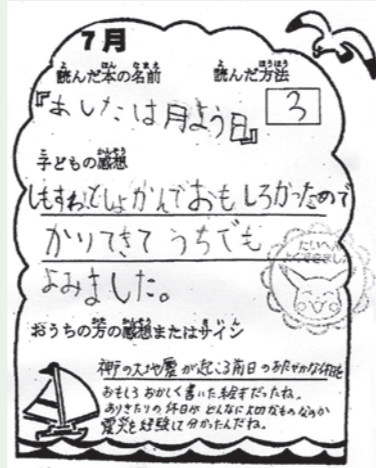 7月
読んだ本の名前 読んだ方法
『あしたは月よう日』 3
子どもの感想
しもすわとしょかんでおもしろかったので
かりてきてうちでも
よみました。
たいへん
よくできました
おうちの方の感想またはサイン
神戸の大地震が起こる前日のおだやかな休日を
おもしろおかしく書いた絵本だったね。
ありきたりの休日がどんなに大切なものなのか
震災を経験して分かったんだね。